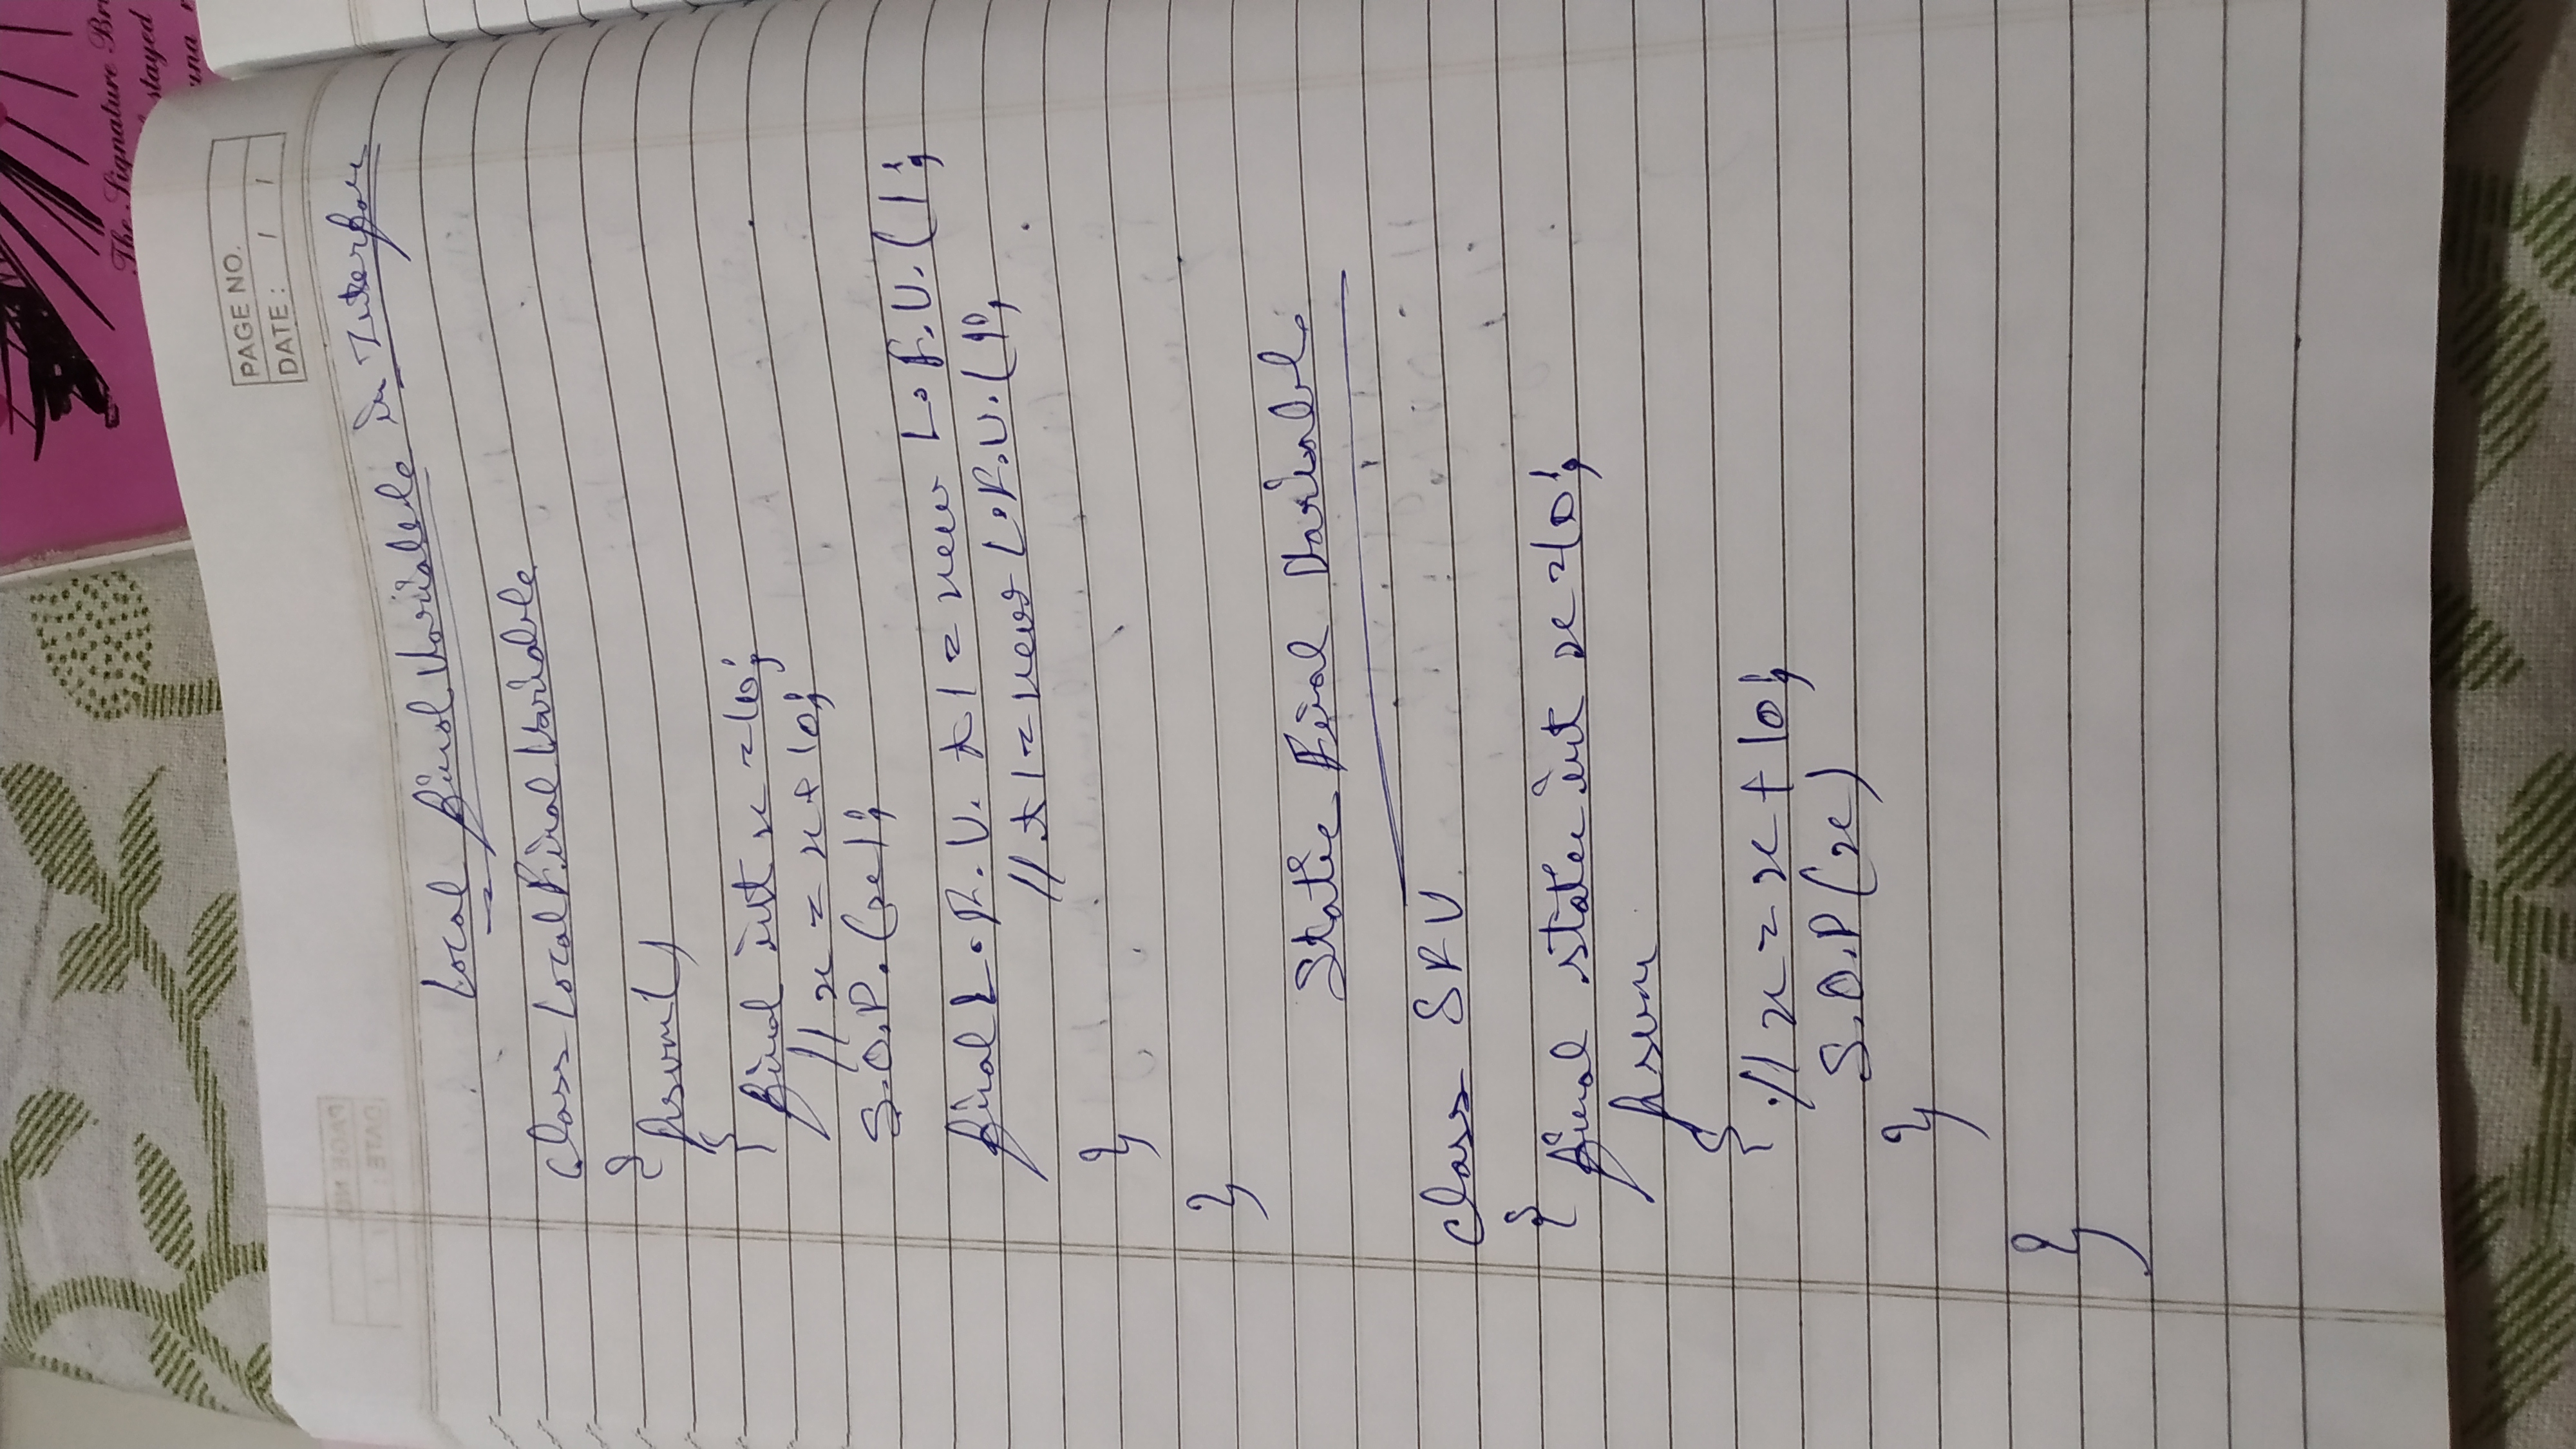 The Signature Bri
stayed
una r
PAGE NO.
DATE : / /
Local final Variable in Interface
class LocalFinalVariable
{
psvm()
{
final int x = 10;
// x = x + 10;
S.O.P. (x);
final L.F.V. t1 = new L.F.V. ();
// t1 = new L.F.V. ();
}
}
Static Final Variable
class SFV
{
final static int x = 10;
psvm
{
// x = x + 10;
S.O.P (x)
}
}